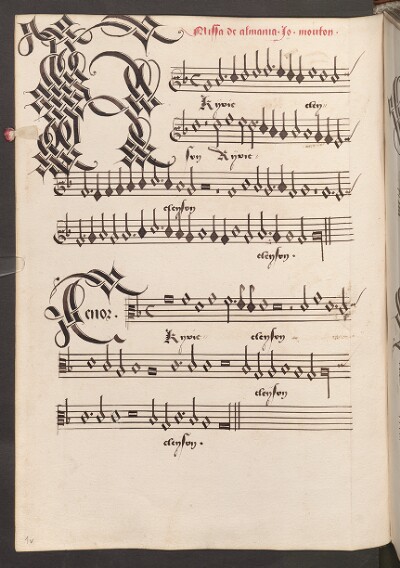 Missa de almania. Jo. mouton.
Kyrie eley-
son Kyrie
eleyson
eleyson.
Tenor.
Kyrie eleyson
eleyson
eleyson.
1v